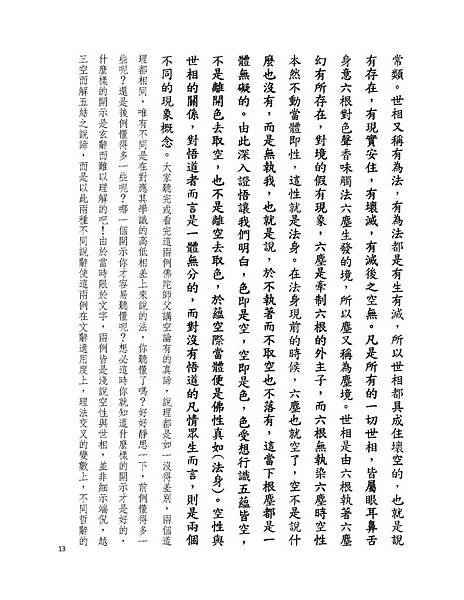 常類。世相又稱有為法，有為法都是有生有滅，所以世相都具成住壞空的，也就是說
有存在，有現實安住，有壞滅，有滅後之空無。凡是所有的一切世相，皆屬眼耳鼻舌
身意六根對色聲香味觸法六塵生發的境，所以塵又稱為塵境。世相是由六根執著六塵
幻有所存在，對境的假有現象，六塵是牽制六根的外主子，而六根無執染六塵時空性
本然不動當體即性，這性就是法身。在法身現前的時候，六塵也就空了，空不是說什
麼也沒有，而是無執我，也就是說，於不執著而不取空也不落有，這當下根塵都是一
體無礙的。由此深入證悟讓我們明白，色即是空，空即是色，色受想行識五蘊皆空，
不是離開色去取空，也不是離空去取色，於蘊空際當體便是佛性真如(法身)。空性與
世相的關係，對悟道者而言是一體無分的，而對沒有悟道的凡情眾生而言，則是兩個
不同的現象概念。大家聽完或看完這兩例佛陀師父講空論有的真諦，說理都是如一沒得差別，兩個道
理都相同，唯有不同是在對應其學識的高低相差上來說的法，你聽懂了嗎？好好靜思一下，前例懂得多一
些呢？還是後例懂得多一些呢？哪一個開示你才容易聽懂呢？想必這時你就知道什麼樣的開示才是好的，
什麼樣的開示是玄辭而難以理解的吧！由於當時限於文字，兩例皆是淺說空性與世相，並非細示端倪，越
三空而解五結之說諦，而是以此兩種不同說辭使這兩例在文辭適用度上，理法交叉的變數上，不同哲辭的
13